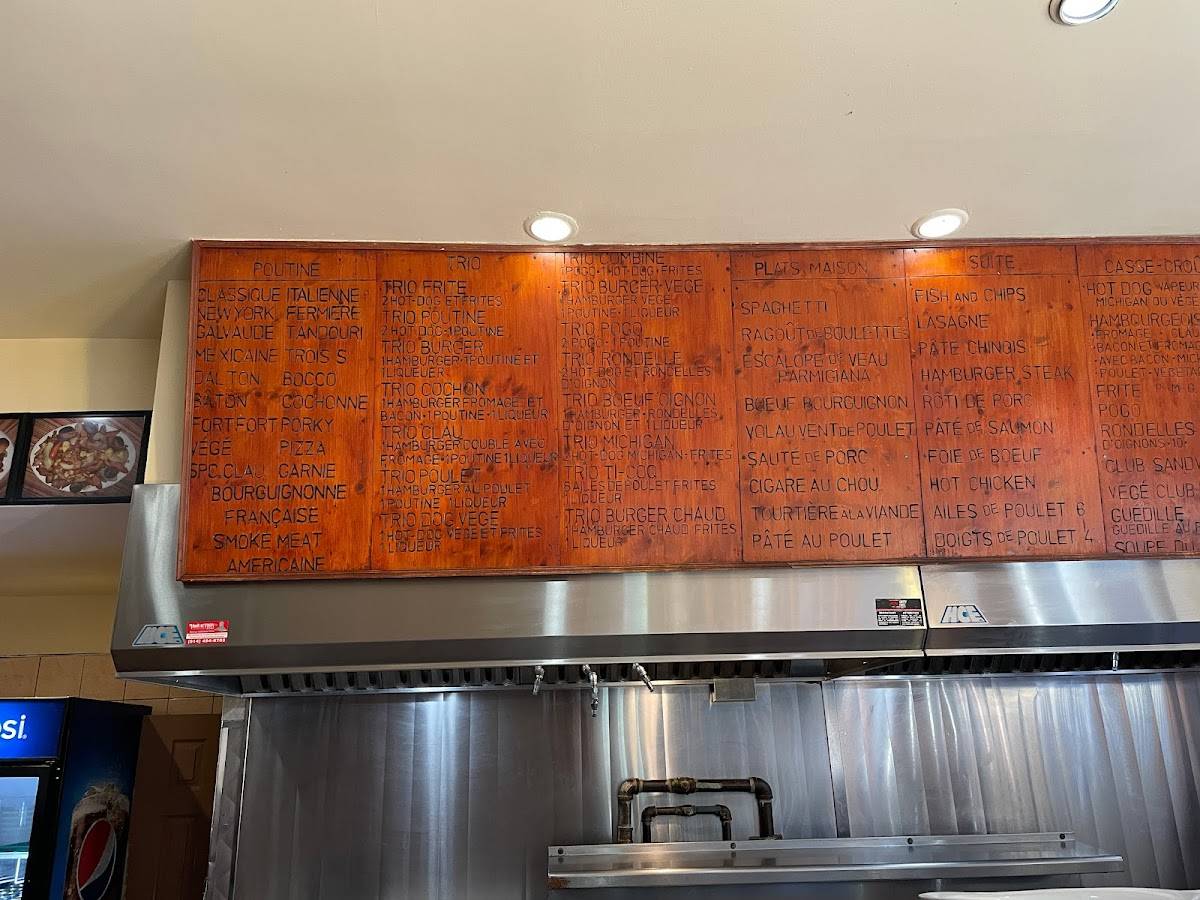 POUTINE
CLASSIQUE ITALIENNE
NEW YORK FERMIÈRE
GALVAUDE TANDOURI
MEXICAINE TROIS S
DALTON BOCCO
BATON COCHONNE
FORT FORT PORKY
VÉGÉ PIZZA
SPC.CLAU CARNIE
BOURGUIGNONNE
FRANÇAISE
SMOKE MEAT
AMERICAINE
TRIO
TRIO FRITE
2 HOT-DOG ET FRITES
TRIO POUTINE
2 HOT-DOG-1 POUTINE
TRIO BURGER
1 HAMBURGER-1 POUTINE ET
1 LIQUEUER
TRIO COCHON
1 HAMBURGER FROMAGE ET
BACON-1 POUTINE-1 LIQUEUR
TRIO CLAU
1 HAMBURGER DOUBLE AVEC
FROMAGE-1 POUTINE 1 LIQUEUR
TRIO POULET
1 HAMBURGER AU POULET
1 POUTINE 1 LIQUEUR
TRIO DOG VEGE
1 HOT-DOG VEGE ET FRITES
1 LIQUEUR
TRIO COMBINE
1 POGO-1 HOT-DOG-FRITES
TRIO BURGER-VEGE
1 HAMBURGER VEGE
1 POUTINE-1 LIQUEUR
TRIO POGO
2 POGO-1 POUTINE
TRIO RONDELLE
2 HOT-DOG ET RONDELLES
D'OIGNON
TRIO BOEUF OIGNON
1 HAMBURGER-RONDELLES
D'OIGNON ET 1 LIQUEUR
TRIO MICHIGAN
2 HOT-DOG MICHIGAN-FRITES
TRIO TI-COQ
6 AILES DE POULET FRITES
1 LIQUEUR
TRIO BURGER CHAUD
1 HAMBURGER CHAUD FRITES
1 LIQUEUR
PLATS MAISON
SPAGHETTI
RAGOÛT DE BOULETTES
ESCALOPE DE VEAU
PARMIGIANA
BOEUF BOURGUIGNON
VOLAU VENT DE POULET
SAUTE DE PORC
CIGARE AU CHOU
TOURTIÈRE À LA VIANDE
PÂTÉ AU POULET
SUITE
FISH AND CHIPS
LASAGNE
PÂTÉ CHINOIS
HAMBURGER STEAK
RÔTI DE PORC
PÂTÉ DE SAUMON
FOIE DE BOEUF
HOT CHICKEN
AILES DE POULET 6
DOIGTS DE POULET 4
CASSE-CROÛ
HOT DOG VAPEUR
MICHIGAN OU VÉGÉ
HAMBURGEOIS
FROMAGE
BACON ET FROMAGE
AVEC BACON-MI
POULET-VEGETA
FRITE P-M-G
POGO
RONDELLES
D'OIGNONS-10-
CLUB SAND
VÉGÉ CLUB
GUÉDILLE
GUEDILLE AU
SOUPE DU
MCE
MCE
si